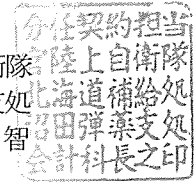 隊
処
智
分任契約担当
官陸上自衛隊
北海道補給処
沼田弾薬支処
会計科長之印